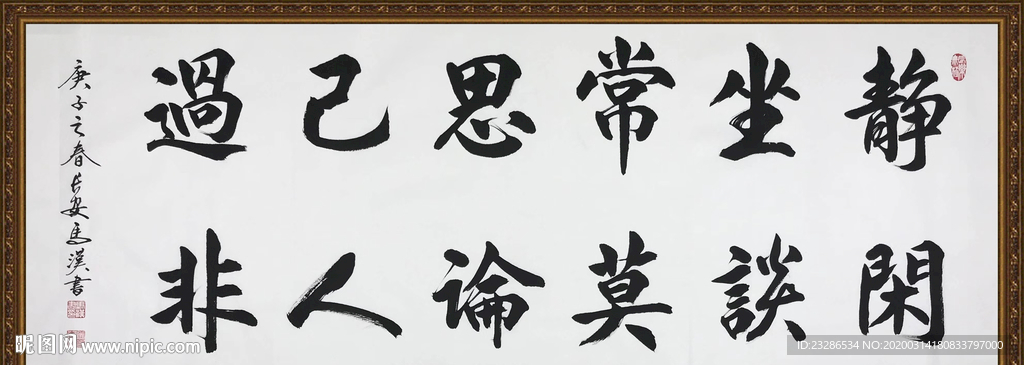 静坐常思己過
閑談莫論人非
庚子之春长安馬漢書
昵图网 www.nipic.com
ID:23286534 NO:20200314180833797000